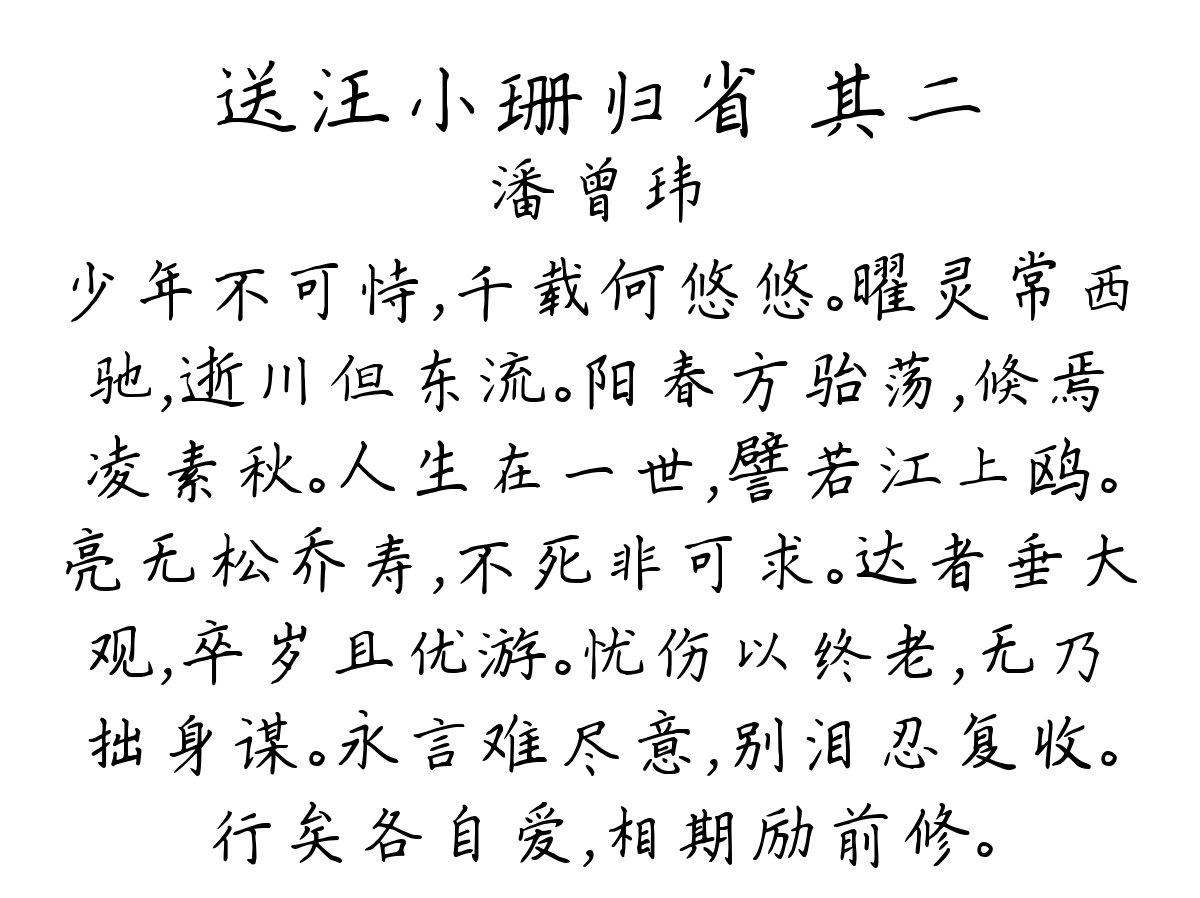 送汪小珊归省 其二
潘曾玮
少年不可恃,千载何悠悠。曜灵常西
驰,逝川但东流。阳春方骀荡,倏焉
凌素秋。人生在一世,譬若江上鸥。
亮无松乔寿,不死非可求。达者垂大
观,卒岁且优游。忧伤以终老,无乃
拙身谋。永言难尽意,别泪忍复收。
行矣各自爱,相期励前修。